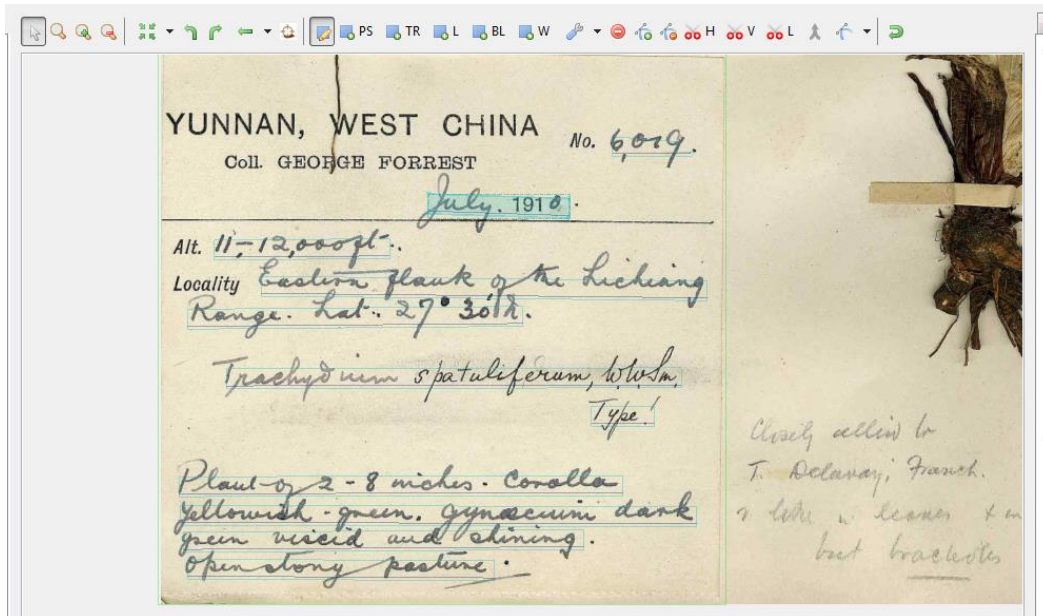 PS TR L BL W H V L
YUNNAN, WEST CHINA
No. 6,019.
Coll. GEORGE FORREST
July. 1910.
Alt. 11-12,000ft.
Locality Eastern flank of the Lichiang
Range. Lat. 27° 30' N.
Trachydium spatuliferum, W.W.Sm.
Type!
Plant of 2-8 inches. Corolla
yellowish-green. Gynaecium dark
green viscid and shining.
Open stony pasture.
Closely allied to
T. Delavayi, Franch.
leaves
but bracteoles